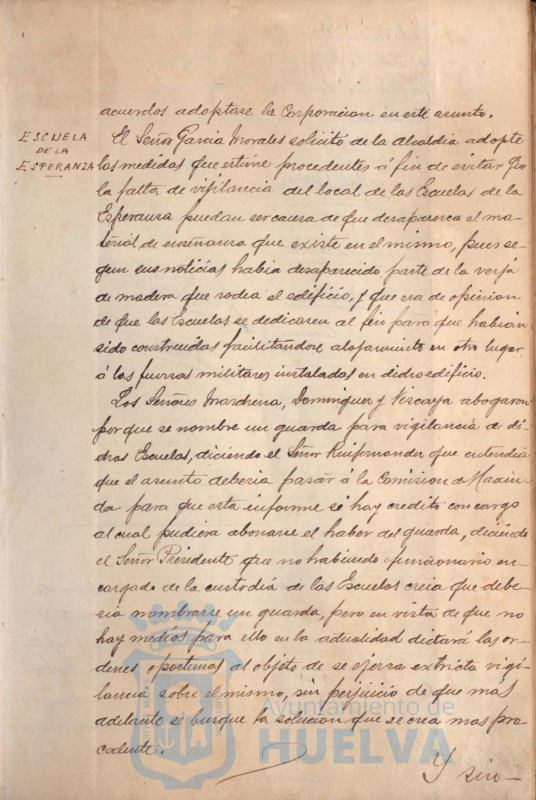 acuerdos adoptase la Corporacion en este asunto.
ESCUELA
DE LA
ESPERANZA
El Señor García Morales solicitó de la Alcaldia adopte
las medidas que estime procedentes á fin de evitar que
la falta de vigilancia del local de las Escuelas de la
Esperanza puedan ser causa de que desaparezca el ma-
terial de enseñanza que existe en el mismo, pues se-
gun sus noticias habia desaparecido parte de la verja
de madera que rodea el edificio, y que era de opinion
de que las Escuelas se dedicasen al fin para que habian
sido construidas facilitandose alojamiento en otro lugar
á las fuerzas militares instaladas en dicho edificio.
Los Señores Marchena, Dominguez y Vizcaya abogaron
porque se nombre un guarda para vigilancia de di-
chas Escuelas, diciendo el Señor Ruifernandez que entendia
que el asunto deberia pasar á la Comision de Hacien-
da para que esta informe si hay credito con cargo
al cual pudiera abonarse el haber del guarda, diciendo
el Señor Presidente que no habiendo funcionario en-
cargado de la custodia de las Escuelas creia que debe-
ria nombrarse un guarda, pero en vista de que no
hay medios para ello en la actualidad dictará las or-
denes oportunas al objeto de se ejerza extricta vigi-
lancia sobre el mismo, sin perjuicio de que mas
adelante se busque la solucion que se crea mas pro-
cedente.
Y sien-
Ayuntamiento de
HUELVA